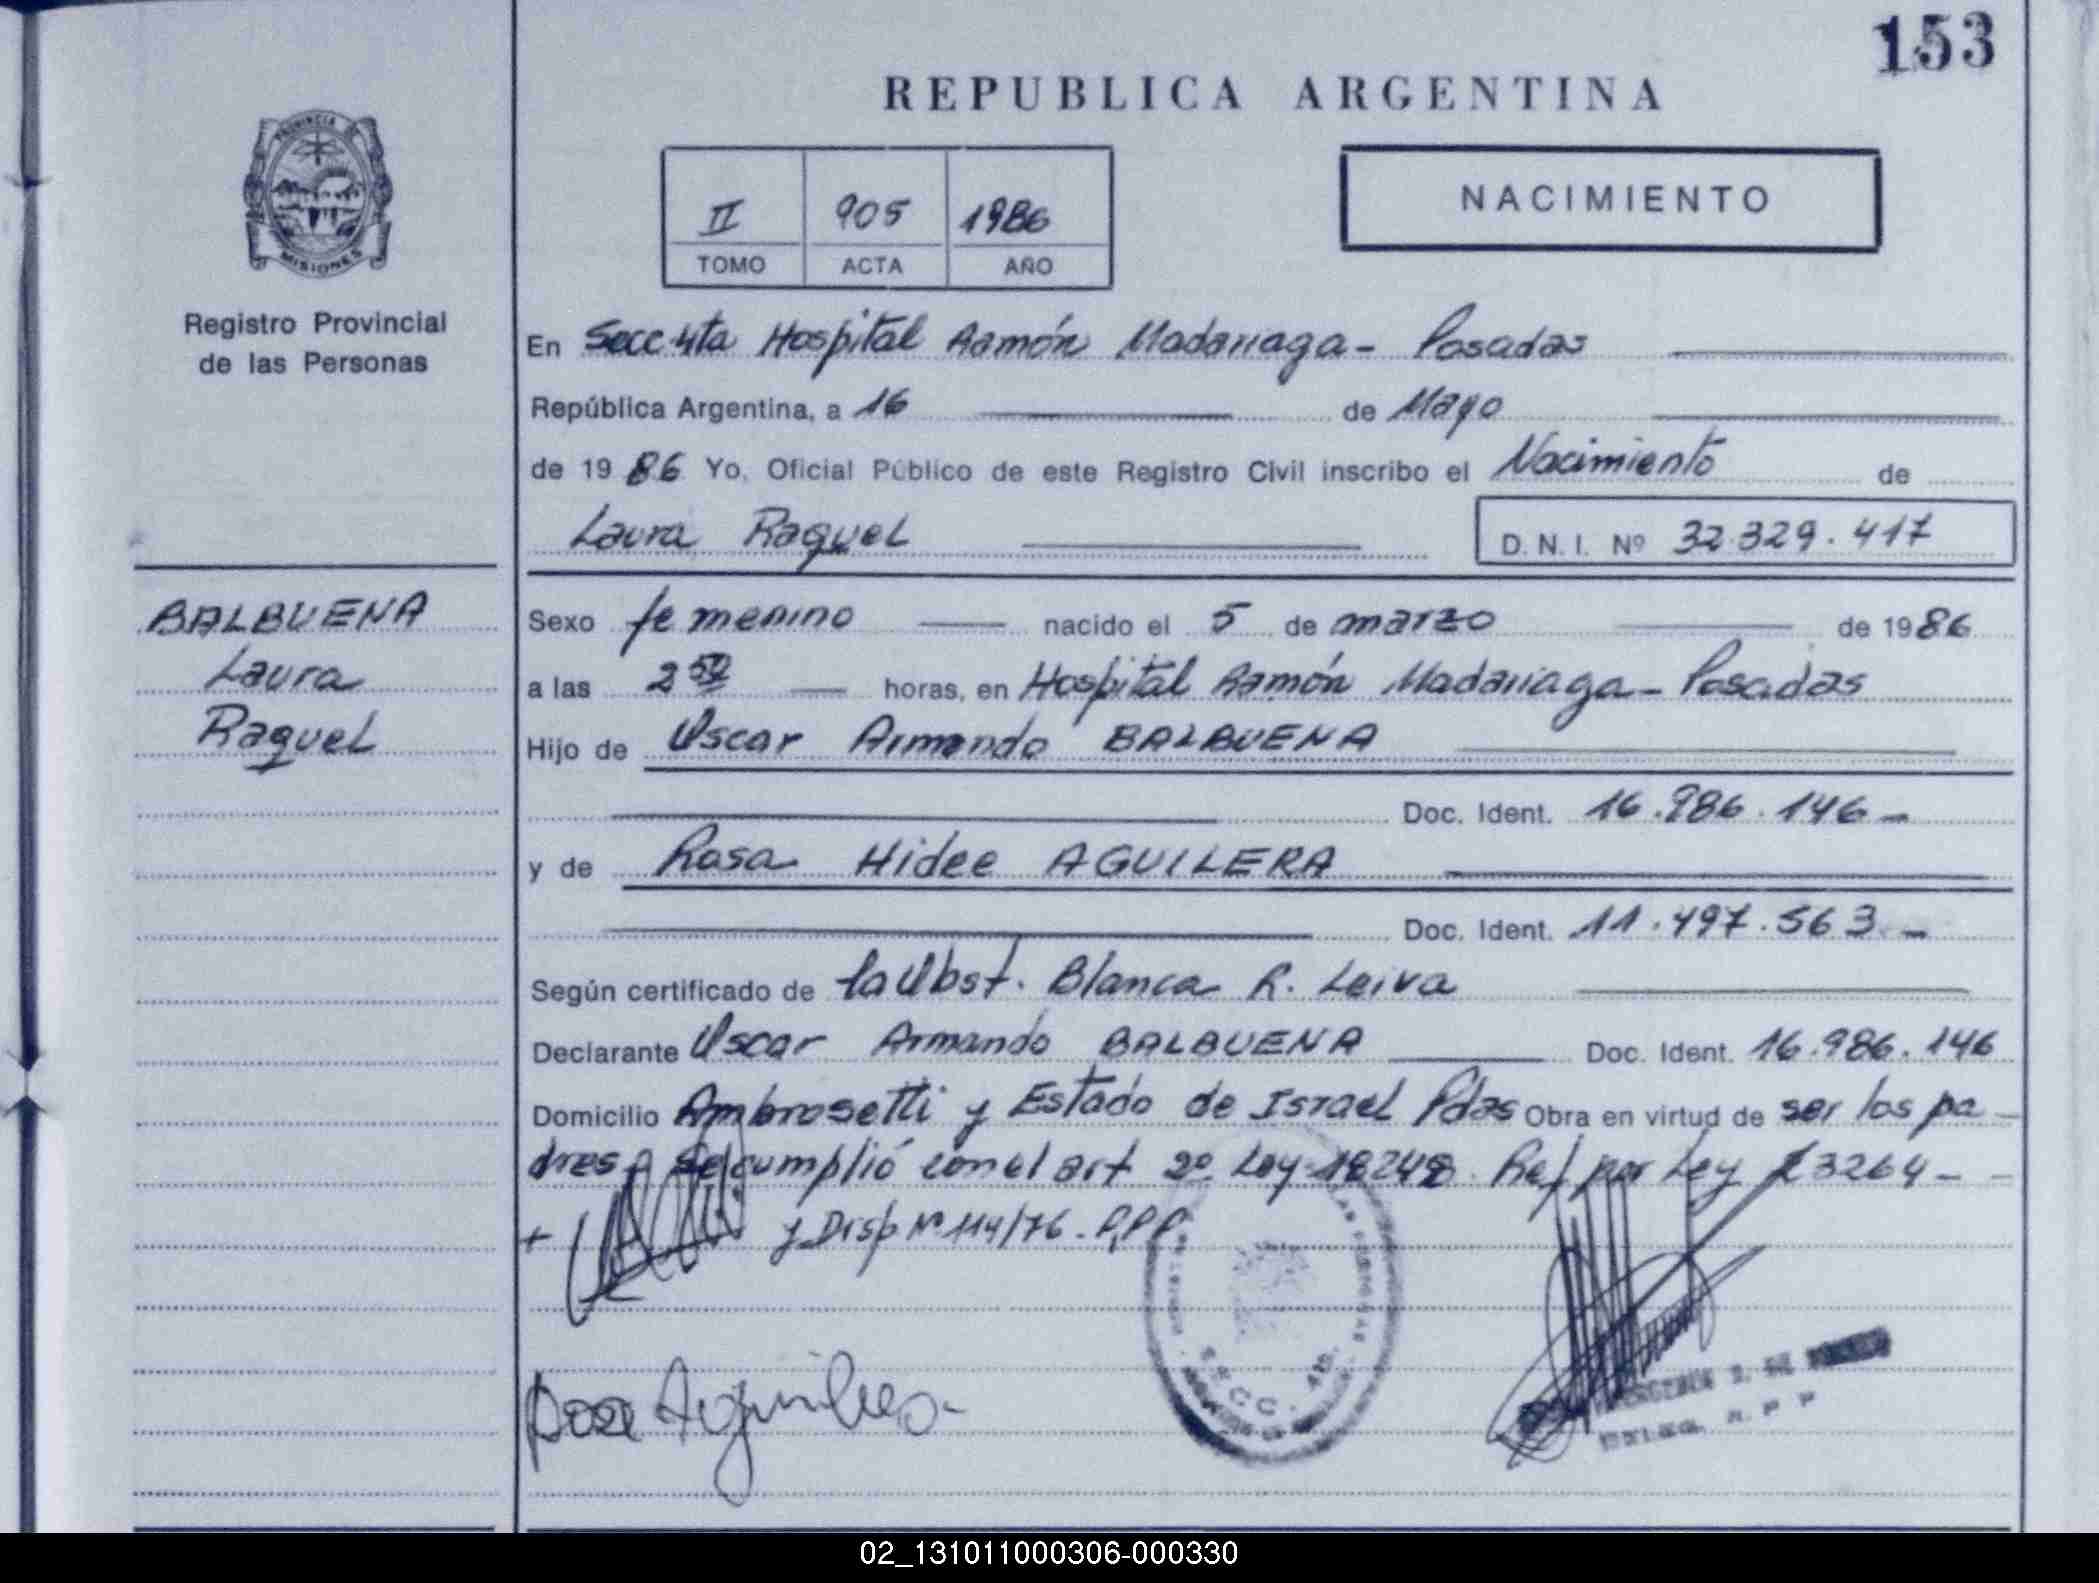 153
REPUBLICA ARGENTINA
PROVINCIA DE
MISIONES
II 905 1986
TOMO ACTA AÑO
NACIMIENTO
Registro Provincial
de las Personas
En Secc 4ta Hospital Ramón Madariaga - Posadas
República Argentina, a 16 de Mayo
de 1986 Yo, Oficial Público de este Registro Civil inscribo el Nacimiento de
Laura Raquel D. N. I. Nº 32.329.417
BALBUENA
Laura
Raquel
Sexo femenino nacido el 5 de marzo de 1986
a las 2 50 horas, en Hospital Ramón Madariaga - Posadas
Hijo de Oscar Armando BALBUENA
Doc. Ident. 16.986.146 -
y de Rosa Hidee AGUILERA
Doc. Ident. 11.497.563 -
Según certificado de la Obst. Blanca R. Leiva
Declarante Oscar Armando BALBUENA Doc. Ident. 16.986.146
Domicilio Ambrosetti y Estado de Israel Pdas Obra en virtud de ser los pa-
dres Se cumplió con el art 2º Ley 18248 Ref por Ley 23264 - -
+ y Disp Nº 114/76 - R.P.P.
Rosa Aguilera -
SECC. 4ta.
02_131011000306-000330